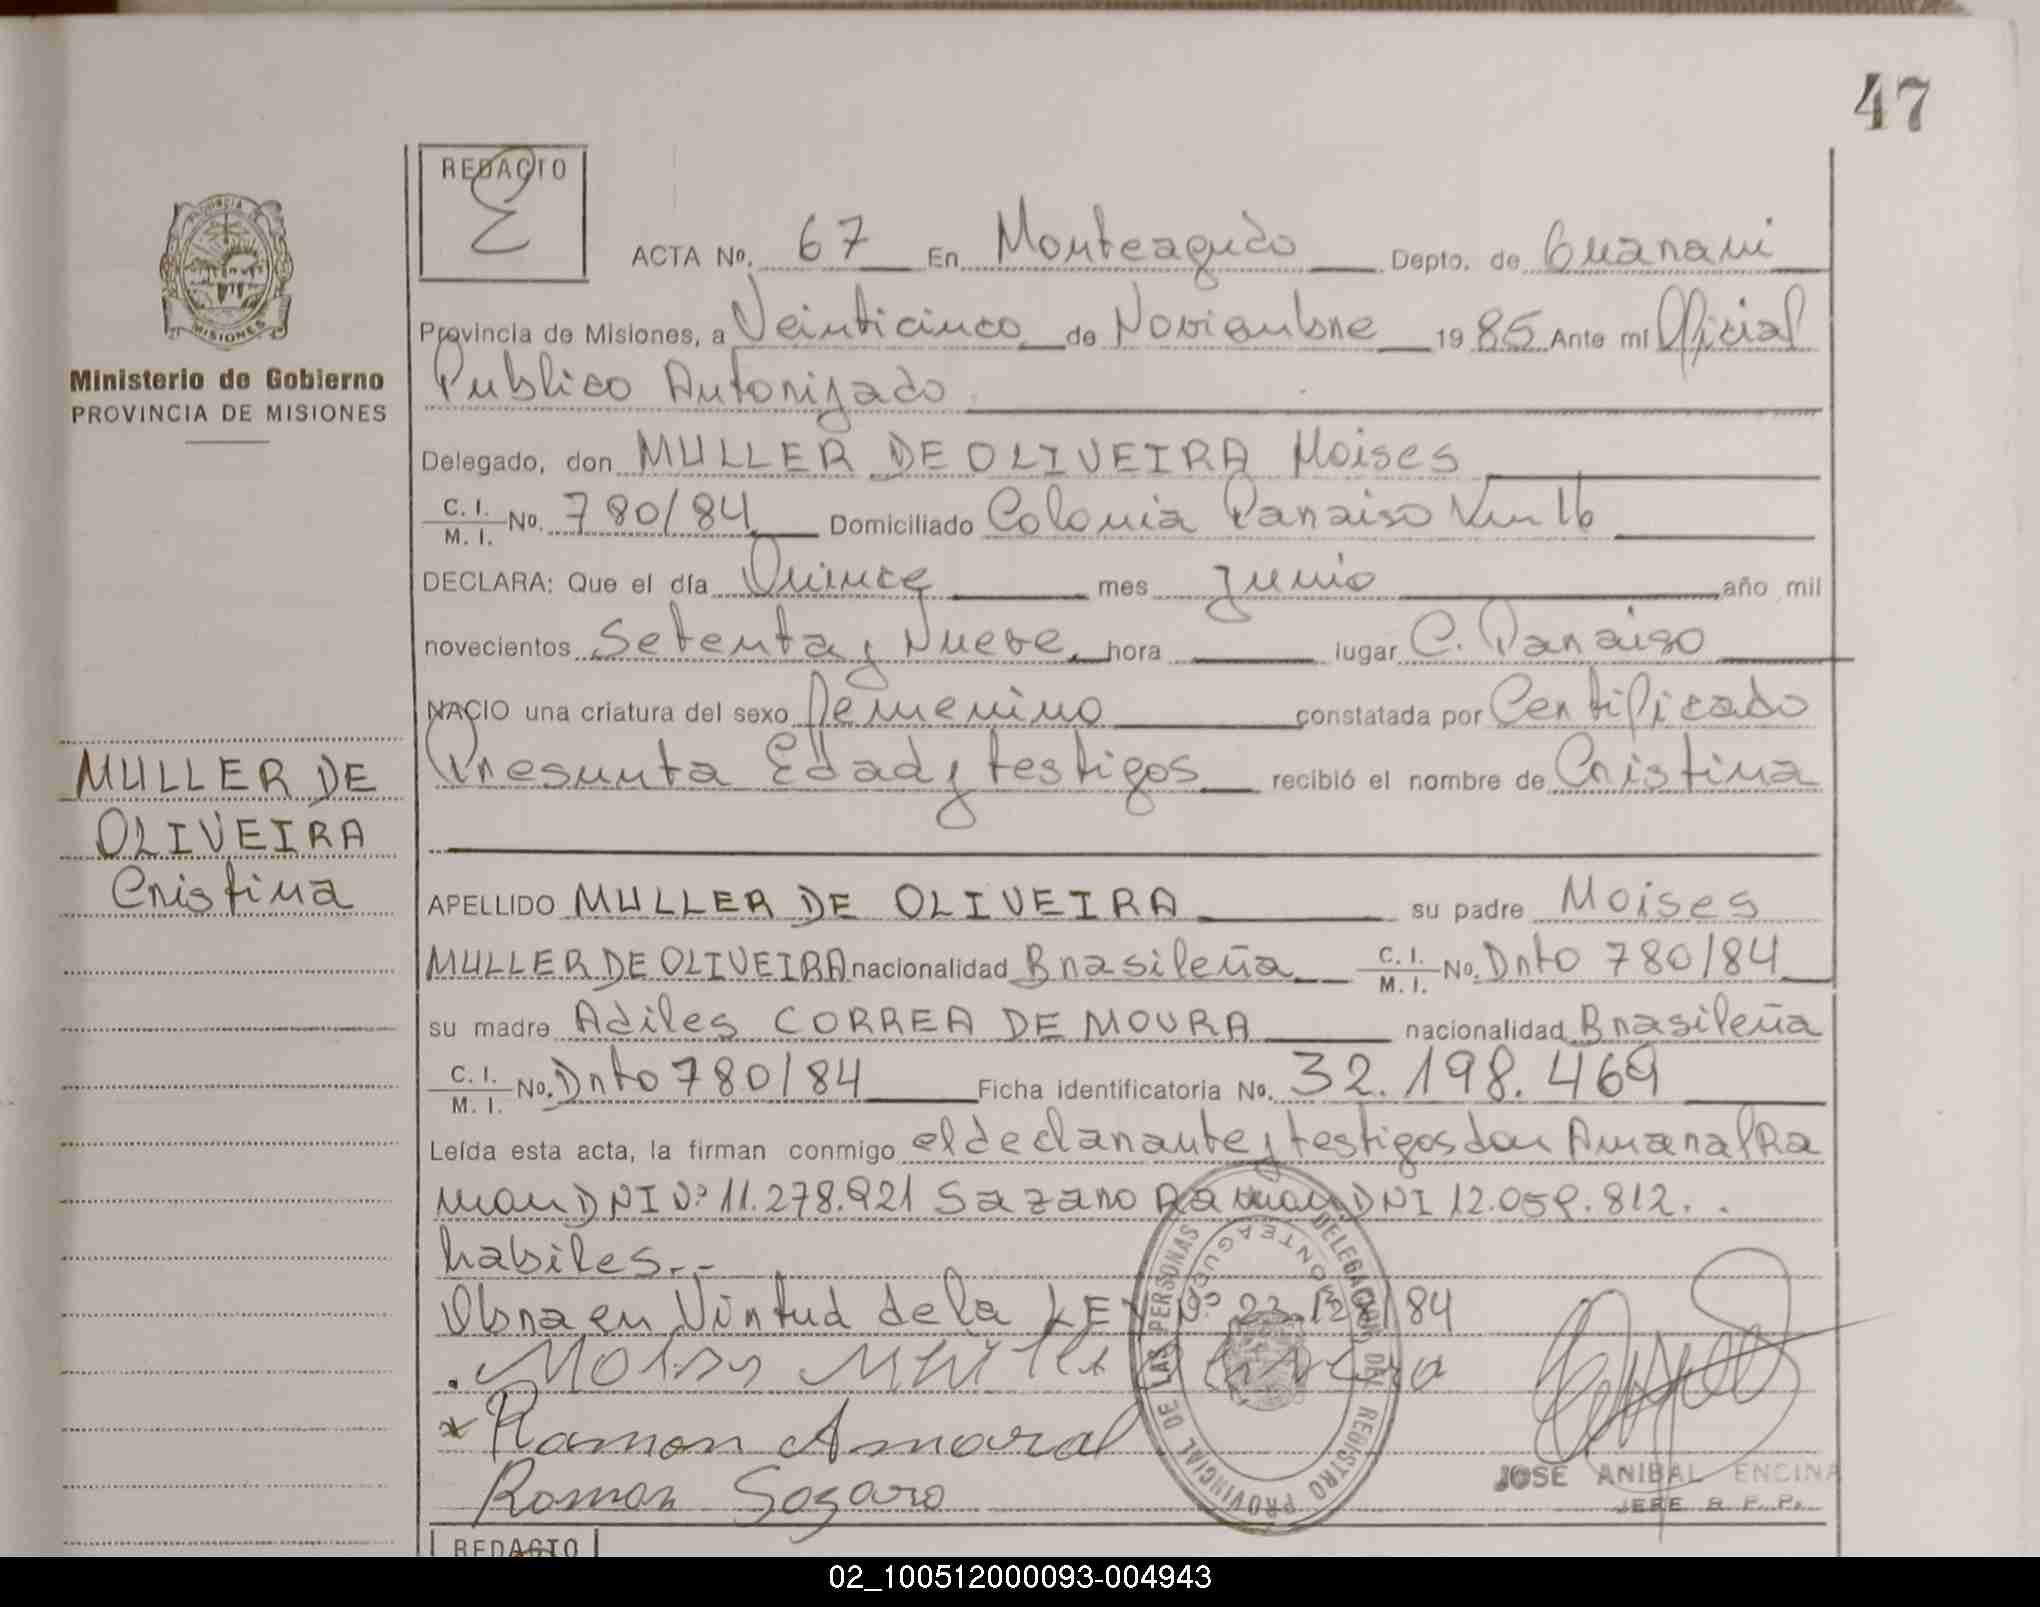 47
REDACTO
ACTA No. 67 En Monteagudo Depto. de Guarani
Provincia de Misiones, a Veinticinco de Noviembre 1985 Ante mi Oficial
Publico Autorizado
Delegado, don MULLER DE OLIVEIRA Moises
C. I. / M. I. No. 780/84 Domiciliado Colonia Paraiso Km 16
DECLARA: Que el día Quince mes Junio año mil
novecientos Setenta y Nueve hora lugar C. Paraiso
NACIO una criatura del sexo Femenino constatada por Certificado
Presunta Edad y testigos recibió el nombre de Cristina
APELLIDO MULLER DE OLIVEIRA su padre Moises
MULLER DE OLIVEIRA nacionalidad Brasileña C. I. / M. I. No. Dnto 780/84
su madre Adiles CORREA DE MOURA nacionalidad Brasileña
C. I. / M. I. No. Dnto 780/84 Ficha identificatoria No. 32.198.469
Leída esta acta, la firman conmigo el declarante y testigos don Amaral Ra
mon DNI Nº 11.278.921 Sazaro Ramon DNI 12.059.812.
habiles.--
Obra en Virtud de la LEY Nº /84
Moises
Ramon Amaral
Ramon Sosaro
JOSE ANIBAL ENCINA
JEFE R. P. P.
DELEGACION DEL REGISTRO PROVINCIAL DE LAS PERSONAS
MONTEAGUDO
PROVINCIA DE
MISIONES
Ministerio de Gobierno
PROVINCIA DE MISIONES
MULLER DE
OLIVEIRA
Cristina
REDACTO
02_100512000093-004943